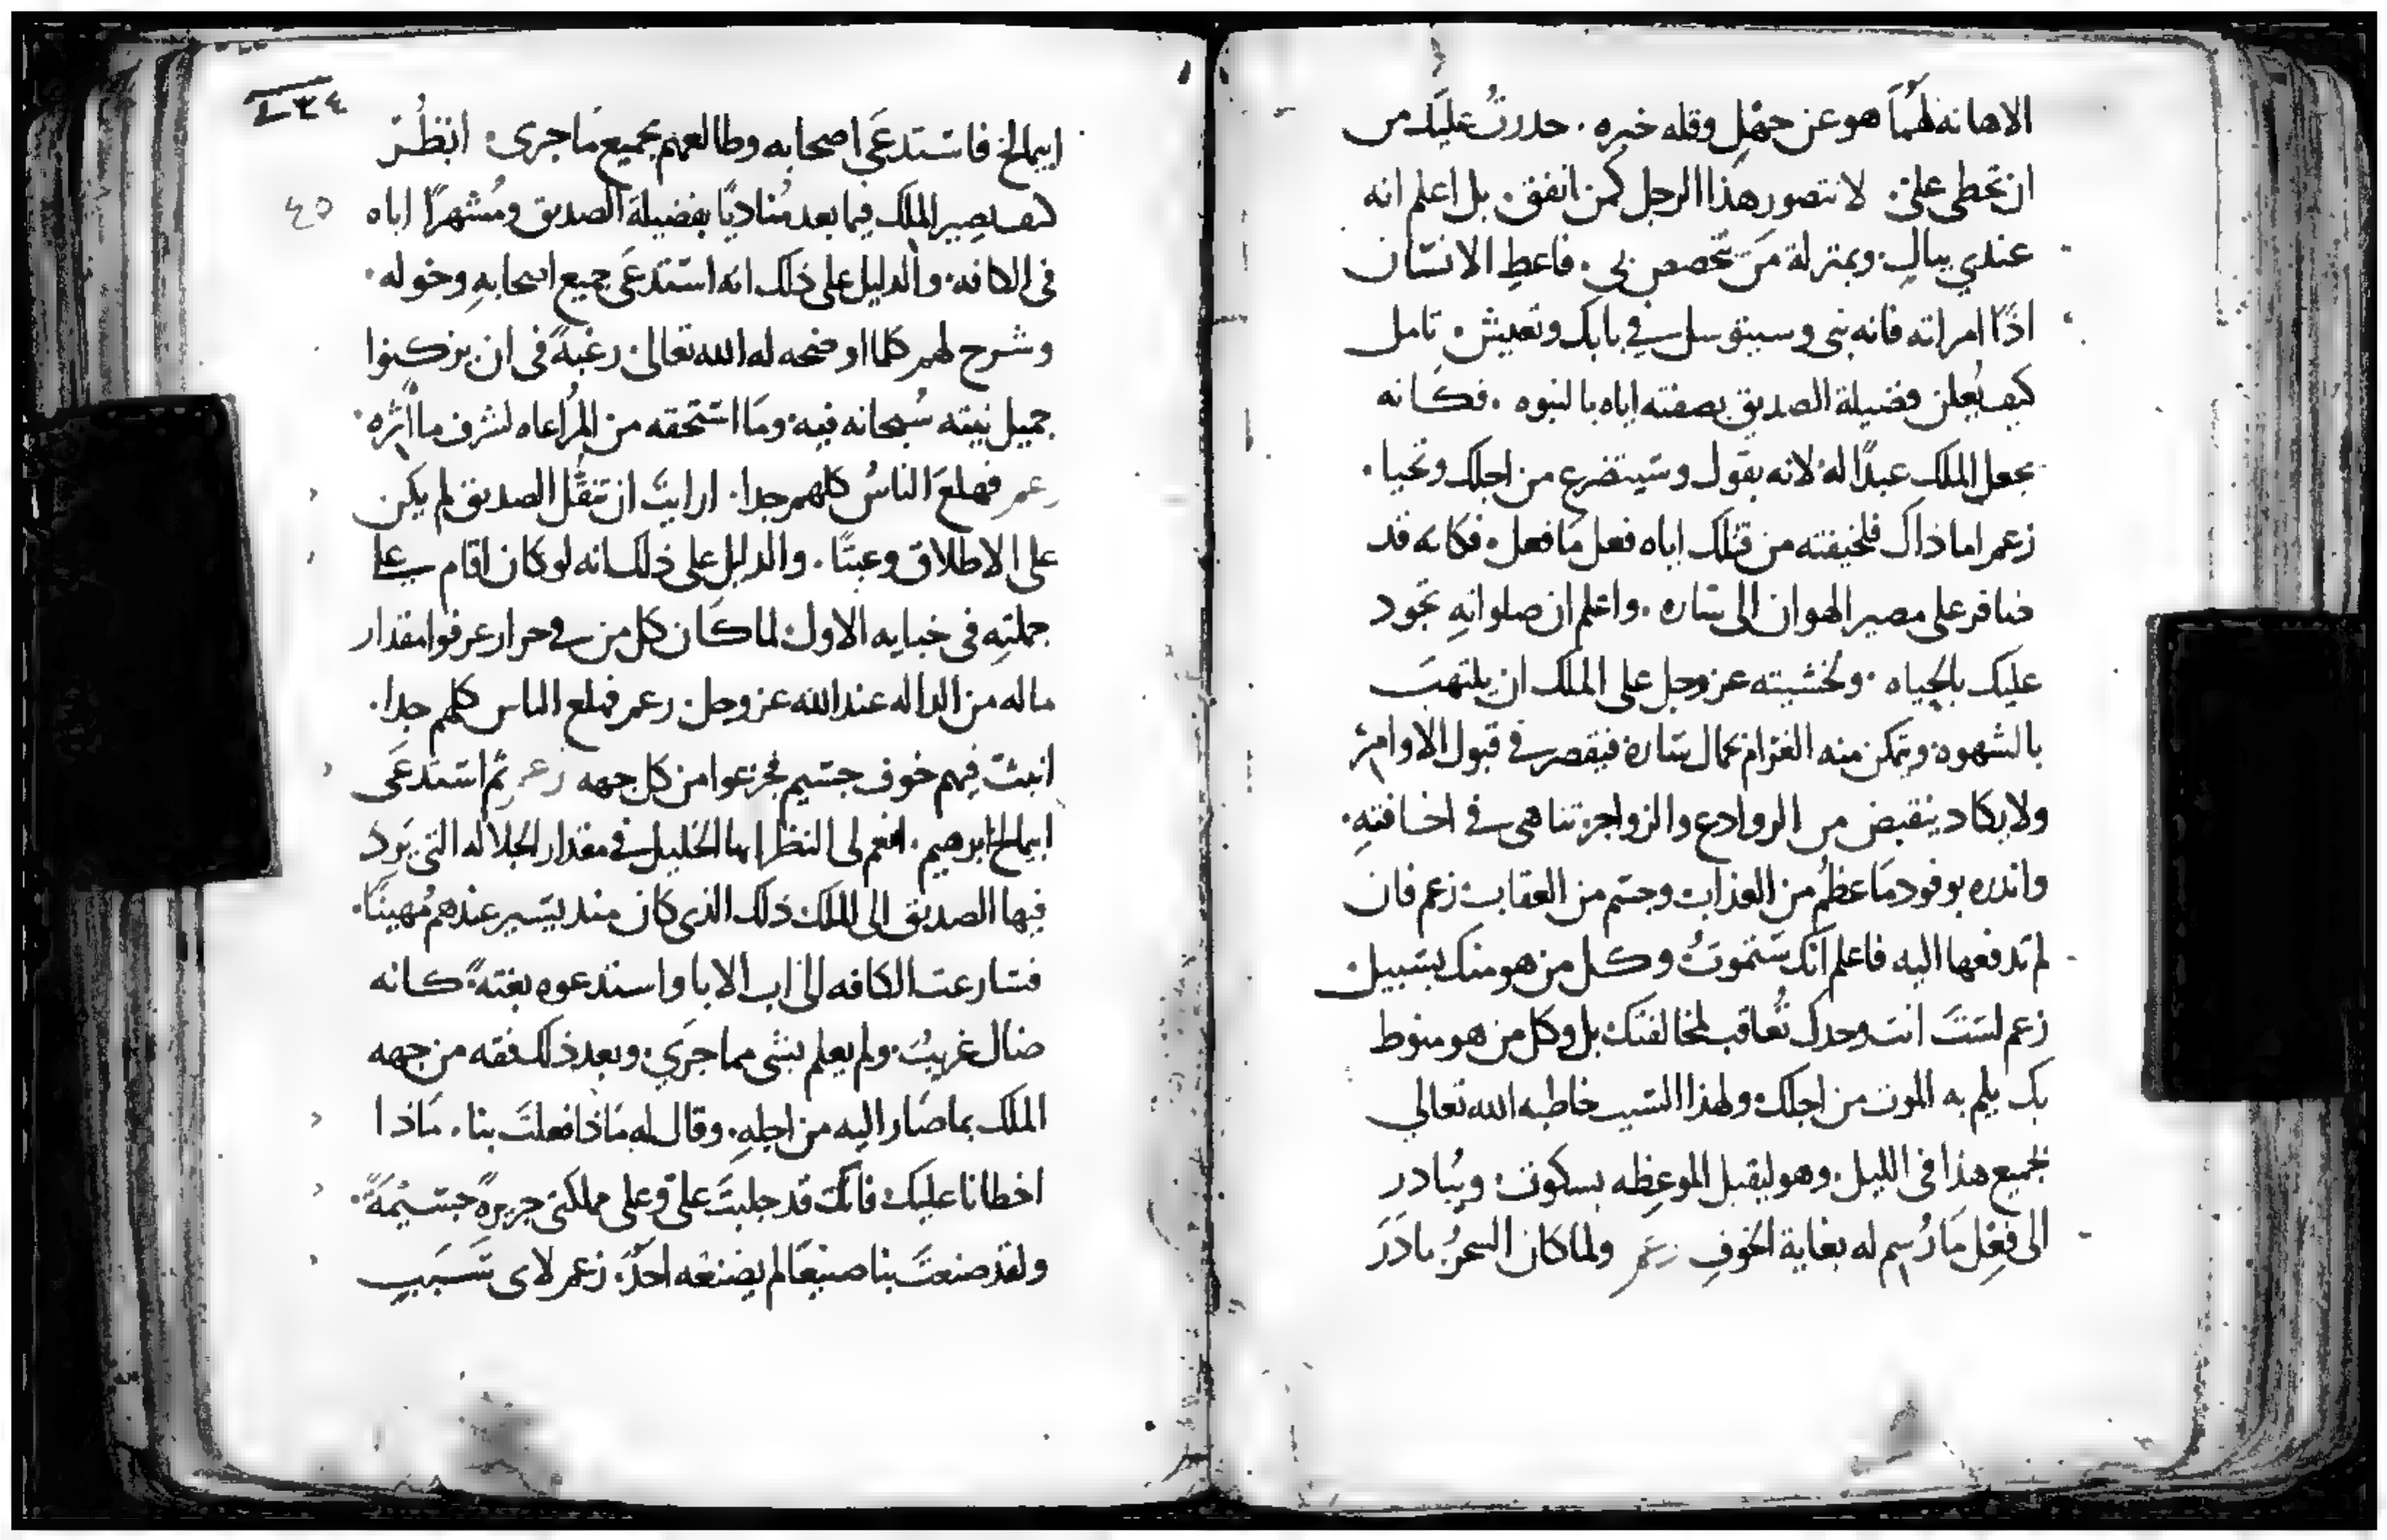 الاهانه لهما هو عن جهل وقله خبره. حدرت عليك من
ان تخطى علي. لا تتصور هذا الرجل كمن اتفق. بل اعلم انه
عندي ببال. وبمنزلة من تخصص بي. فاعط الانسان
اذًا امراته فانه نبي وسيتوسل في بابك وتعيش. تامل
كيف يعلن فضيلة الصديق بصفته اياه بالنبوه. فكانه
يجعل الملك عبدًا له لانه يقول وسيتضرع من اجلك وتحيا.
زعم اما ذاك فلخيفته من قتلك اياه فعل ما فعل. فكانه قد
ضافر على مصير الهوان الى ساره. واعلم ان صلواته تجود
عليك بالحياه. ولخشيته عز وجل على الملك ان يلتهب
بالشهوه ويتمكن منه الغرام بجمال ساره فيقصر في قبول الاوامر
ولا يكاد ينقبض من الروادع والزواجر تناهى في اخافته.
وانذره بوفود ما عظم من العذاب وجسم من العقاب زعم فان
لم تدفعها اليه فاعلم انك ستموت وكل من هو منك بسبيل
زعم لست انت وحدك تعاقب لمخالفتك بل وكل من هو منوط
بك يلم به الموت من اجلك ولهذا السبب خاطبه الله تعالي
بجميع هذا في الليل. وهو ليقبل الموعظه بسكوت ويبادر
الى فعل ما رسم له بغاية الخوف زعم ولما كان السحر بادر
٤٣٤
ابيمالخ فاستدعى اصحابه وطالعهم بجميع ما جرى. انظر
كيف يصير الملك فيما بعد مناديًا بفضيلة الصديق ومشهرًا اياه
٤٥
في الكافه. والدليل على ذلك انه استدعى جميع اصحابه وخوله.
وشرح لهم كلما اوضحه له الله تعالى رغبةً في ان يزكنوا
جميل نيته سبحانه فيه. وما استحقه من المراعاه لشرف مااثره.
زعم فهلع الناس كلهم جدا. ارايت ان تنقل الصديق لم يكن
على الاطلاق وعبثًا. والدليل على ذلك انه لو كان اقام على
جملته في خبايه الاول لما كان كل من في جرار عرفوا مقدار
ما له من الداله عند الله عز وجل. زعم فهلع الناس كلهم جدا.
انبث فيهم خوف جسيم فجزعوا من كل جهه زعم ثم استدعى
ابيمالخ ابرهيم. انعم لى النظر ايها الخليل في مقدار الجلاله التي يرد
فيها الصديق الى الملك ذلك الذي كان منذ يسير عندهم مهينًا.
فسارعت الكافه الى اب الابا واستدعوه بغتةً كانه
ضال غريب. ولم يعلم بشى مما جرى. وبعد ذلك فقه من جهه
الملك بما صار اليه من اجله. وقال له ماذا فعلت بنا. ماذا
اخطانا عليك فانك قد جلبت علي وعلى مملكتي جريرةً جسيمةً.
ولقد صنعت بنا صنيعًا لم يصنعه احدٌ. زعم لاى سبب